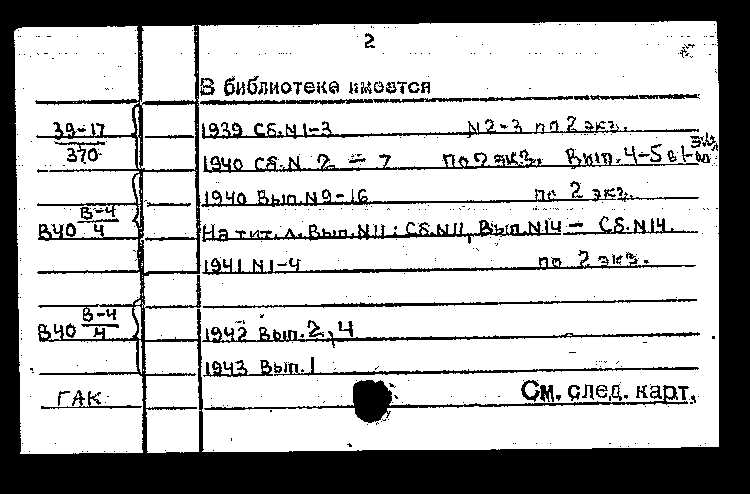 2
В библиотеке имеется
39-17
370
1939 Сб.N1-3 N2-3 по 2 экз.
1940 Сб.N 2 - 7 по 2 экз. Вып. 4-5 в 1-ом экз.
1940 Вып.N9-16 по 2 экз.
В40 В-4
4
На тит. л. Вып.N11: Сб.N11, Вып.N14 - Сб.N14.
1941 N1-4 по 2 экз.
В40 В-4
4
1942 Вып.2,4
1943 Вып.1
ГАК
См. след. карт.